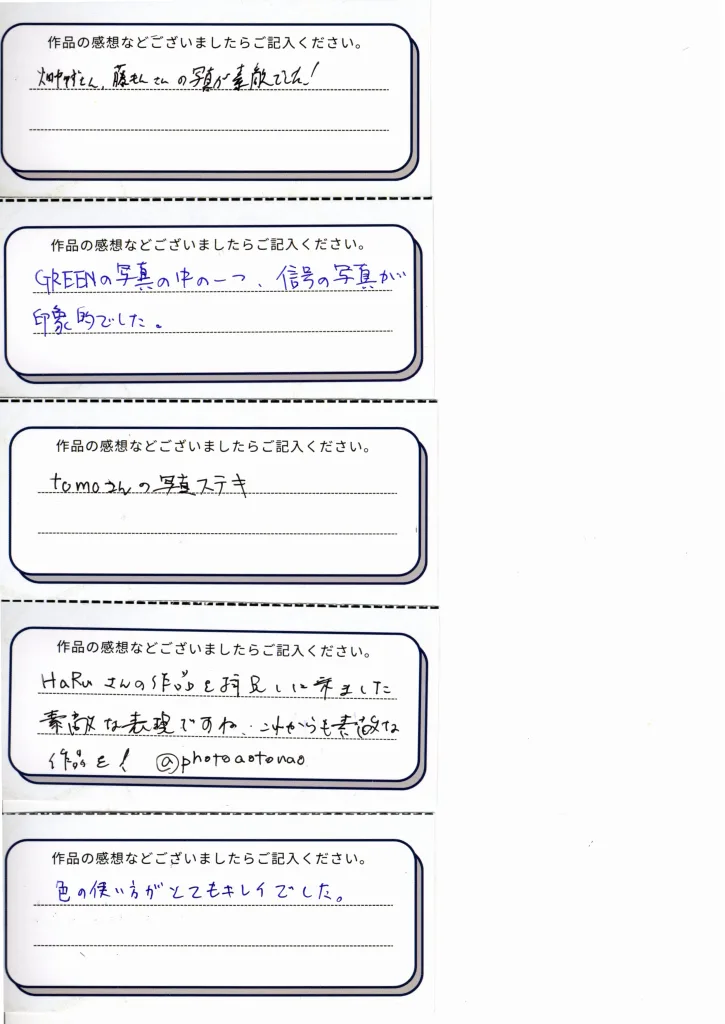 作品の感想などございましたらご記入ください。
さん、藤もんさんの写真が素敵でした！
作品の感想などございましたらご記入ください。
GREENの写真の中の一つ、信号の写真が
印象的でした。
作品の感想などございましたらご記入ください。
tomoさんの写真ステキ
作品の感想などございましたらご記入ください。
HaRuさんの作品を拝見しに来ました
素敵な表現ですね、これからも素敵な
作品を！ @photoaotonao
作品の感想などございましたらご記入ください。
色の使い方がとてもキレイでした。